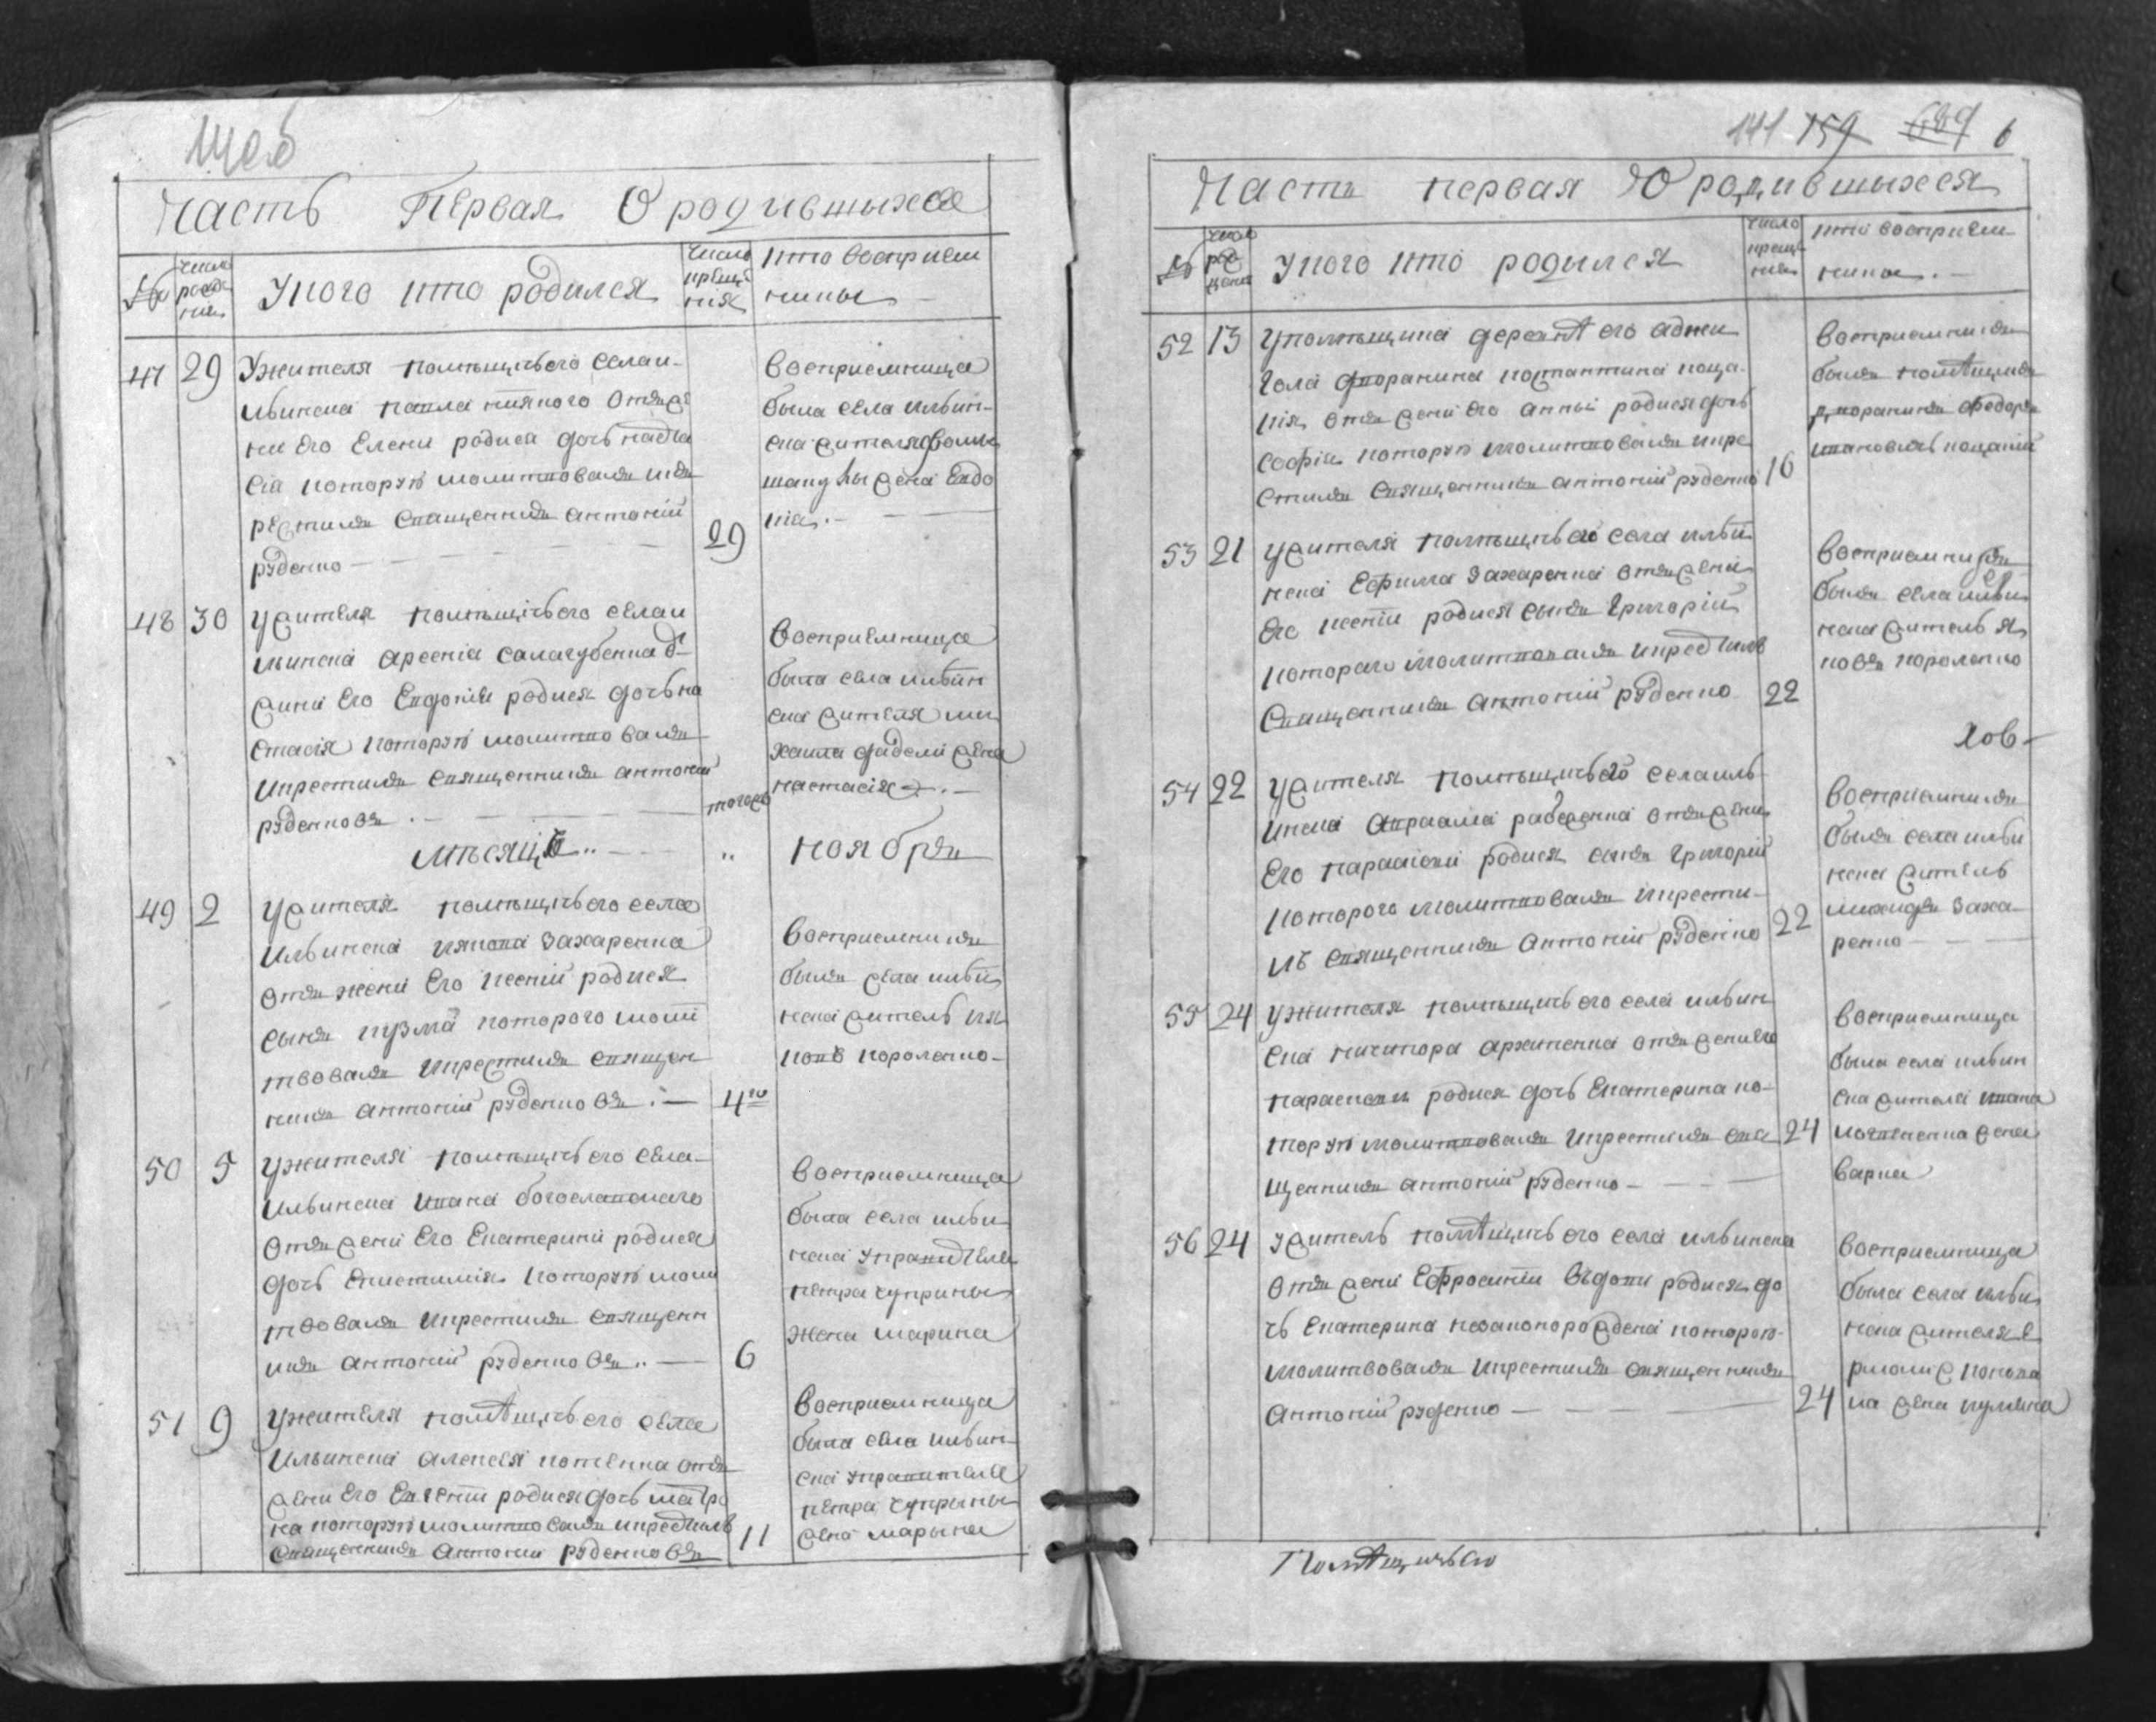 Часть Первая О родившихся
№
число рожде ния
У кого кто родился
число креще ния
кто восприем
ники
47 29 У жителя помѣщичьего села и-
льинска павла о тъ же
ни его Елени родися дочь наста
сіа которую молитвовалъ и к
рестилъ священникъ антоній
руденко 29
восприемница
была села ильин-
ска жителя
жена Евдо
кіа
48 30 У жителя помѣщичьего села и
льинска арсенія салагубенка о
жини его Евдокіи родися дочь на
стасія которую молитвовалъ
и крестилъ священникъ антоній
руденковъ тогожъ
восприемница
была села ильин
ска жителя ми
хаила жена
настасія
мѣсяцъ ноября
49 2 У жителя помѣщичьего села
ильинска якова захаренка
отъ жени его ксеніи родися
сынъ кузма которого моли
твовалъ и крестилъ священ
никъ антоній руденковъ 4го
восприемникъ
былъ села ильи
нска житель як
ковъ короленко
50 5 У жителя помѣщичьего села
ильинска ивана богославского
отъ жени его Екатерини родися
дочь Епистимія которую моли
твовалъ и крестилъ священн
икъ антоній руденковъ 6
восприемница
была села ильи
нска управителя
петра чуприны
жена марина
51 9 У жителя помѣщичьего села
ильинска алексея котенка отъ
жени его Евгеніи родися дочь матро
на которую молитвовалъ и крестилъ
священникъ антоній руденковъ 11
восприемница
была села ильин
ска управителя
петра чуприны
жена марына
141 159 6
Часть первая О родившыхся
№
число рожденія
У кого кто родылся
число креще нія
кто восприем-
ники
52 13 У помѣщика дворанина костантина коца-
кія отъ жени его анны родися дочь
софія которую молитвовалъ и кре
стилъ священникъ антоній руденко 16
восприемникъ
былъ помѣщикъ
дворанинъ федоръ
ивановъ
53 21 У жителя помѣщичьего села ильи
нска Ефима захаренка отъ жени
его ксеніи родися сынъ григорій
которого молитвовалъ и крестилъ
священникъ антоній руденко 22
восприемникъ
былъ села ильи
нска житель я
ковъ короленко
54 22 У жителя помѣщичьего села иль
инска авраама отъ жени
его параскеи родися сынъ григорій
которого молитвовалъ и крести-
лъ священникъ антоній руденко 22
восприемникъ
былъ села ильи
нска житель
заха-
ренко
55 24 У жителя помѣщичьего села ильин
ска никифора архипенка отъ жени его
параскеви родися дочь Екатерина ко-
торую молитвовалъ и крестилъ свя
щенникъ антоній руденко 24
восприемница
была села ильин
ска жителя ивана
жена
варка
56 24 У житель помѣщичьего села ильинска
отъ жени Ефросиніи вьдови родися до
чь Екатерина незаконорожденна которою
молитвовалъ и крестилъ священникъ
антоній руденко 24
восприемница
была села ильи
нска жителя е
рмолы конова
ла жена кулына
Помѣщичьяго